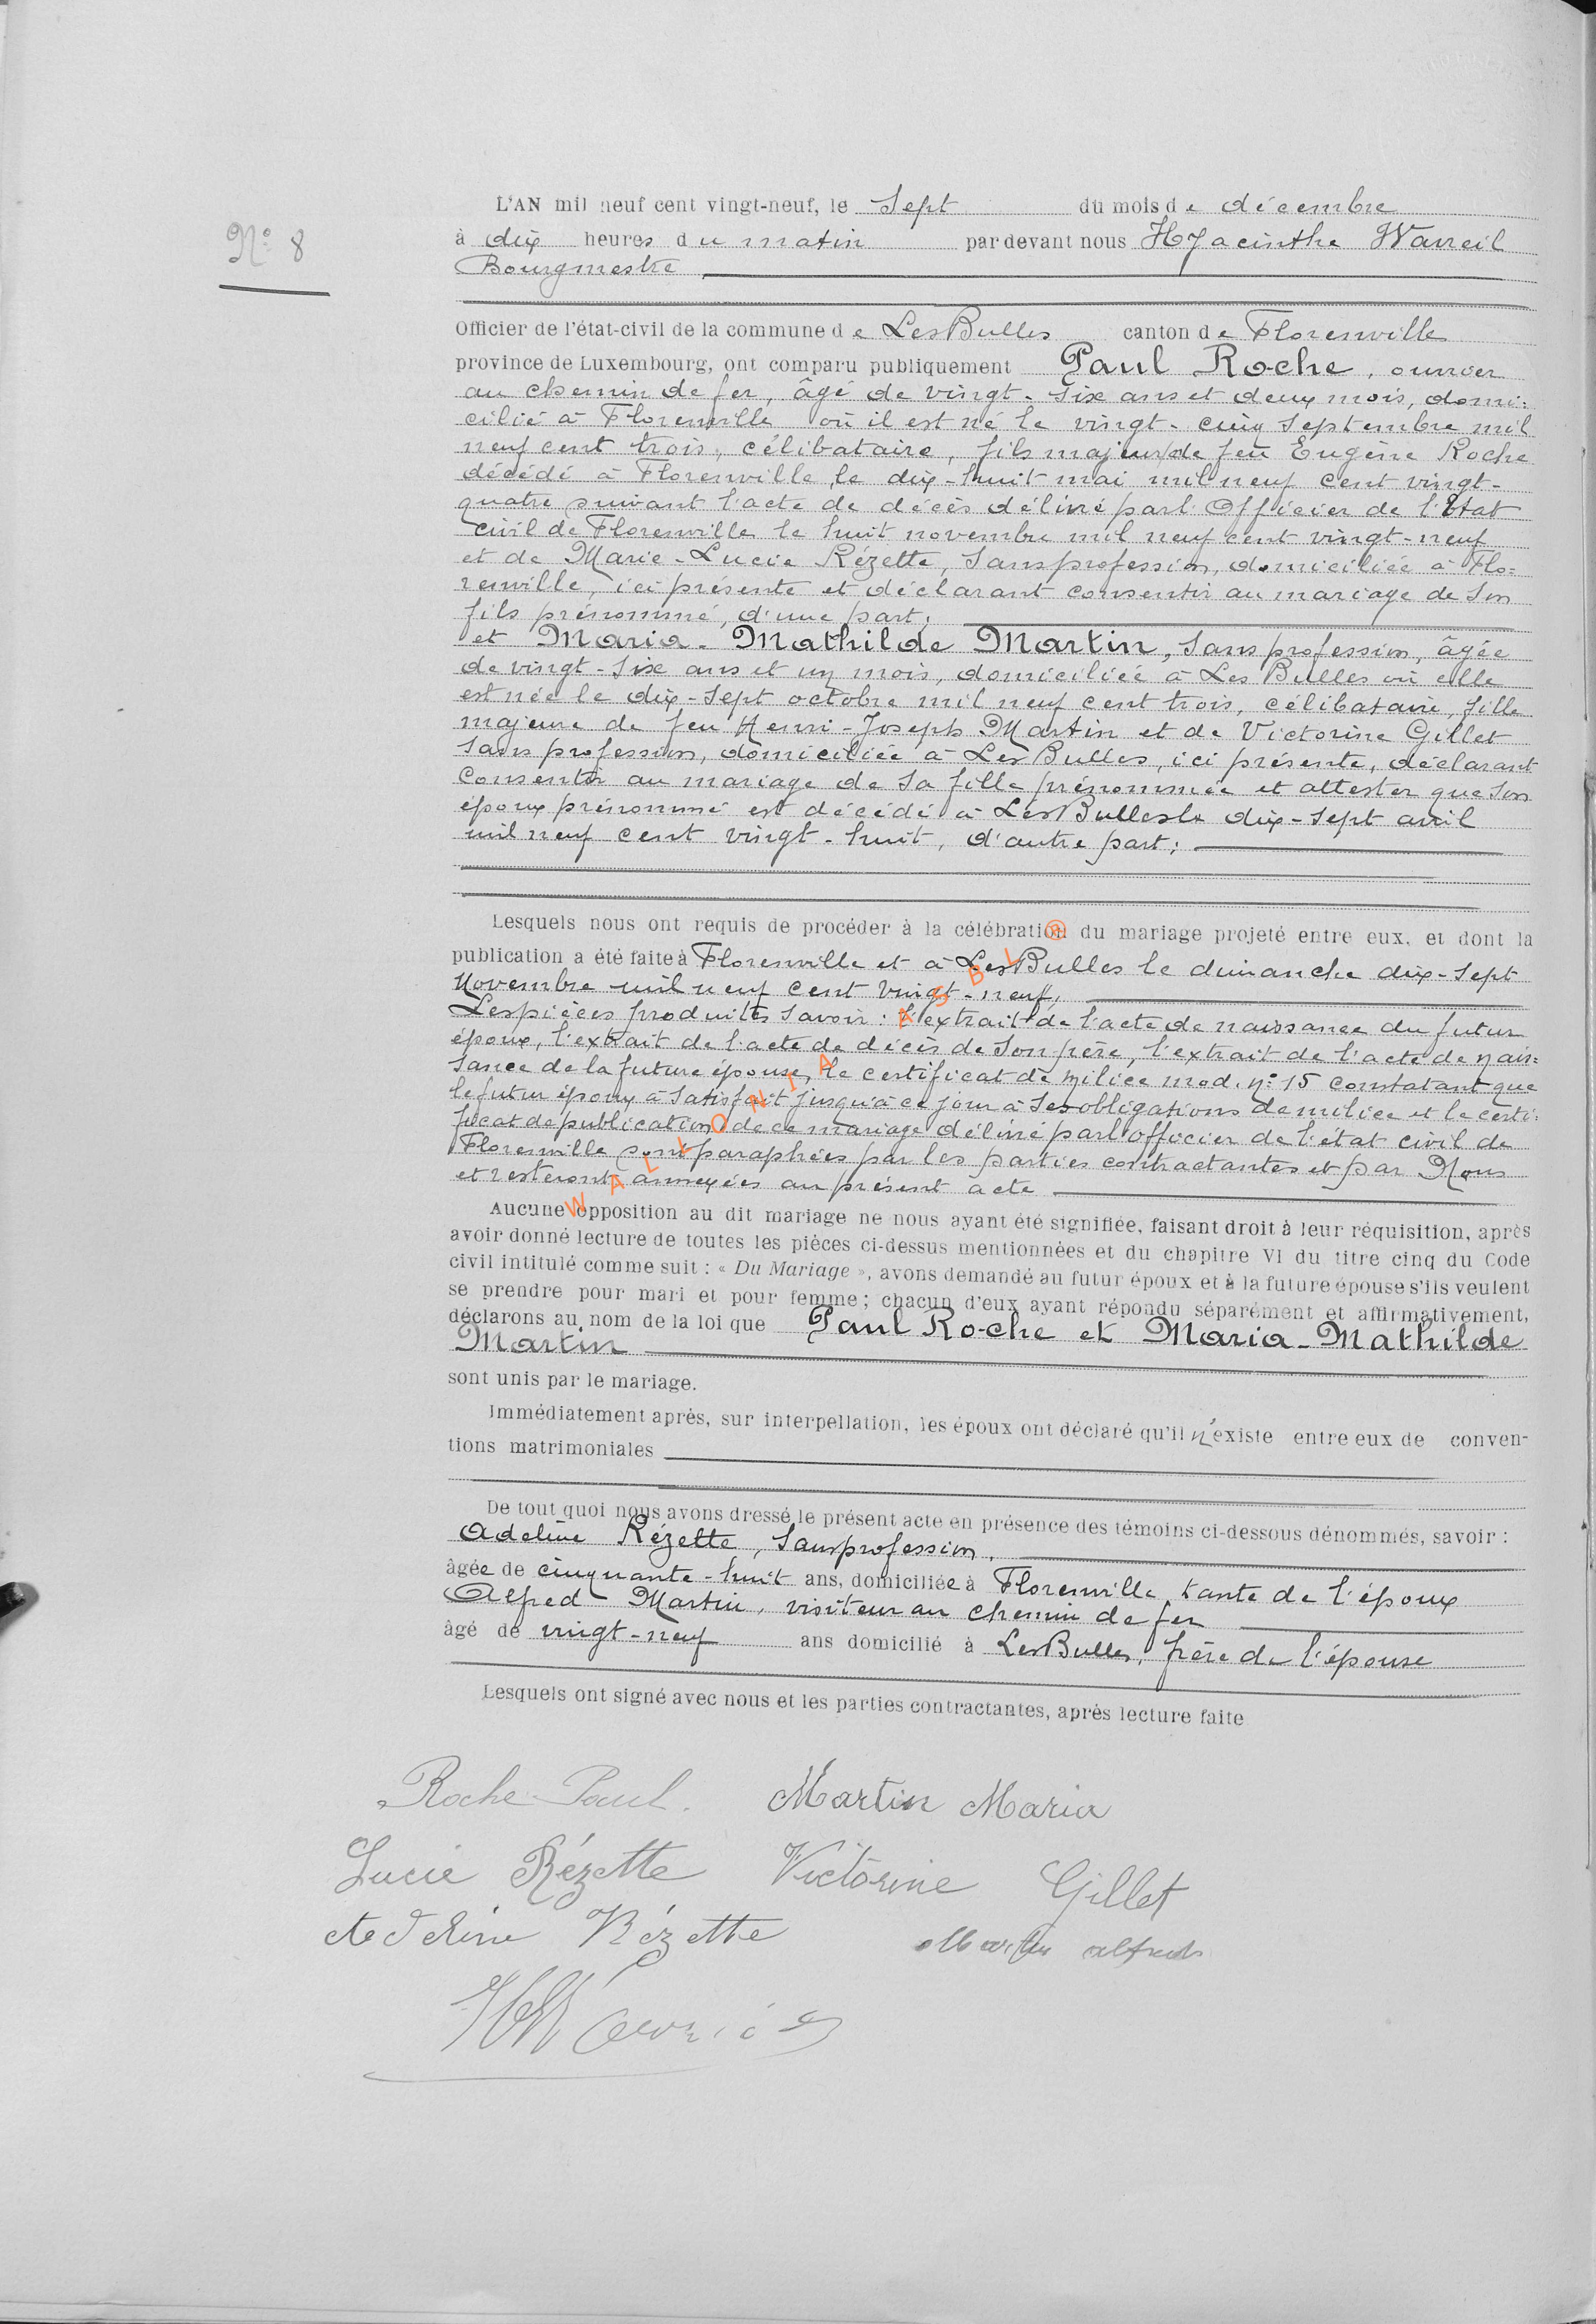 N° 8
L'AN mil neuf cent vingt-neuf, le Sept du mois de décembre
à dix heures du matin par devant nous Hyacinthe
Bourgmestre
Officier de l'état-civil de la commune de Les Bulles canton de Florenville
province de Luxembourg, ont comparu publiquement Paul Roche, ouvrier
au chemin de fer, âgé de vingt-six ans et deux mois, domi=
cilié à Florenville où il est né le vingt-cinq Septembre mil
neuf cent trois, célibataire, fils majeur de feu Eugène Roche
décédé à Florenville le dix-huit mai mil neuf cent vingt-
quatre suivant l'acte de décès délivré par l'Officier de l'Etat
civil de Florenville le huit novembre mil neuf cent vingt-neuf
et de Marie-Lucie Rézette, Sans profession, domiciliée à Flo=
renville, ici présente et déclarant consentir au mariage de Son
fils prénommé, d'une part;
et Maria-Mathilde Martin, Sans profession, âgée
de vingt-six ans et un mois, domiciliée à Les Bulles où elle
est née le dix-sept octobre mil neuf cent trois, célibataire, fille
majeure de feu Henri-Joseph Martin et de Victorine Gillet
Sans profession, domiciliée à Les Bulles, ici présente, déclarant
Consentir au mariage de sa fille prénommée et attester que Son
époux prénommé est décédé à Les Bulles le dix-sept avril
mil neuf cent vingt-huit, d'autre part;
Lesquels nous ont requis de procéder à la célébration du mariage projeté entre eux, et dont la
publication a été faite à Florenville et à Les Bulles le dimanche dix-sept
Novembre mil neuf cent vingt-neuf,
Les pièces produites Savoir: l'extrait de l'acte de naissance du futur
époux, l'extrait de l'acte de décès de Son père, l'extrait de l'acte de nais=
Sance de la future épouse, le certificat de milice mod. n° 15 constatant que
le futur époux à Satisfait jusqu'à ce jour à Ses obligations de milice et le certi=
ficat de publication de ce mariage délivré par l'officier de l'état civil de
Florenville sont paraphées par les parties contractantes et par Nous
et resteront annexées au présent acte
Aucune opposition au dit mariage ne nous ayant été signifiée, faisant droit à leur réquisition, après
avoir donné lecture de toutes les pièces ci-dessus mentionnées et du chapitre VI du titre cinq du Code
civil intitulé comme suit : « Du Mariage », avons demandé au futur époux et à la future épouse s'ils veulent
se prendre pour mari et pour femme ; chacun d'eux ayant répondu séparément et affirmativement,
déclarons au nom de la loi que Paul Roche et Maria-Mathilde
Martin
sont unis par le mariage.
Immédiatement après, sur interpellation, les époux ont déclaré qu'il n'existe entre eux de conven-
tions matrimoniales
De tout quoi nous avons dressé le présent acte en présence des témoins ci-dessous dénommés, savoir :
Adeline Rézette, Sans profession,
âgée de cinquante-huit ans, domiciliée à Florenville tante de l'époux
Alfred Martin, visiteur au chemin de fer
âgé de vingt-neuf ans domicilié à Les Bulles, frère de l'épouse
Lesquels ont signé avec nous et les parties contractantes, après lecture faite
Roche Paul. Martin Maria
Lucie Rézette Victorine Gillet
Adeline Rézette Martin alfred
WALLONIA ASBL ®